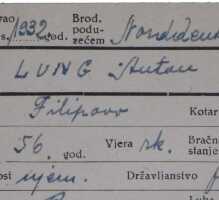 vao 1932. Brod.
s., god. poduzećem Norddeut
LUNG Antun
Filipovo Kotar
56. god. Vjera rk. Bračn
stanje
osi njem. Državljanstvo